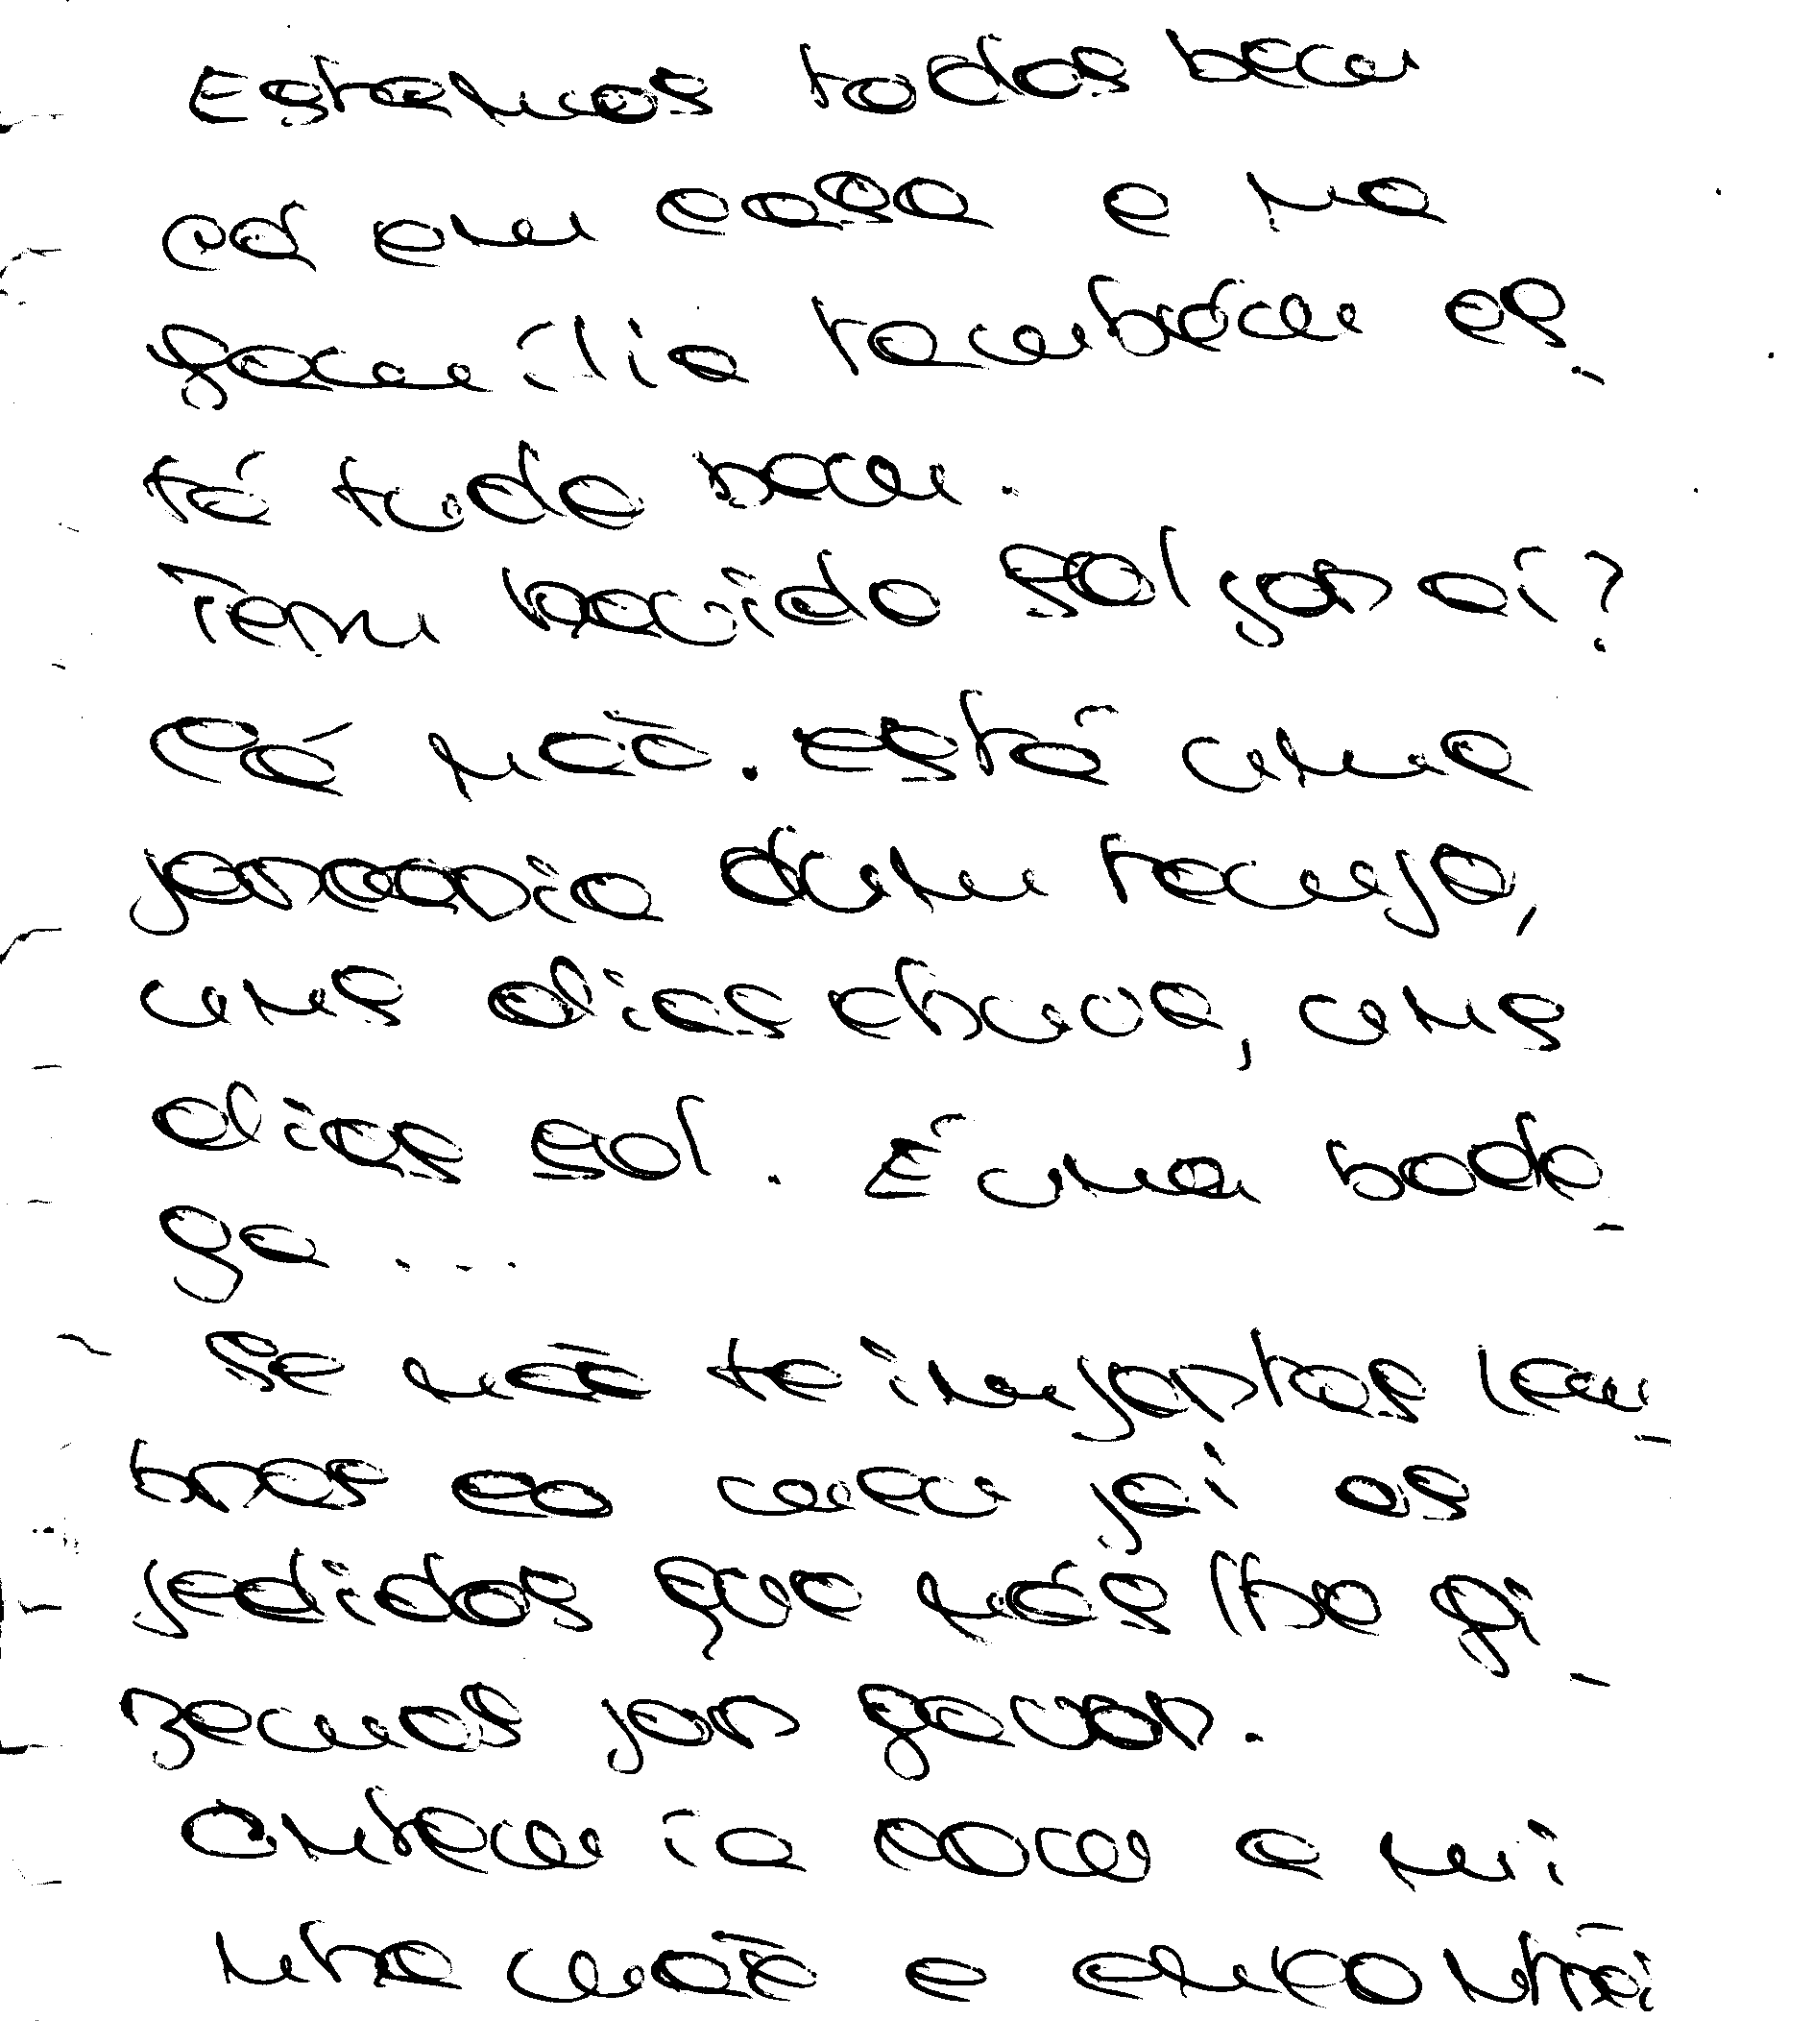 Estamos todos bem
cá em casa e na
família também es-
tá tudo bem.
Tem havido sol por aí?
Cá não. está uma
porcaria dum tempo,
uns dias chuva, uns
dias sol. É uma bode-
ga....
Se não te importas lem-
bras ao meu pai os
pedidos que nós lhe fi-
zemos por favor.
Ontem ia com a mi
nha mãe e encontrei